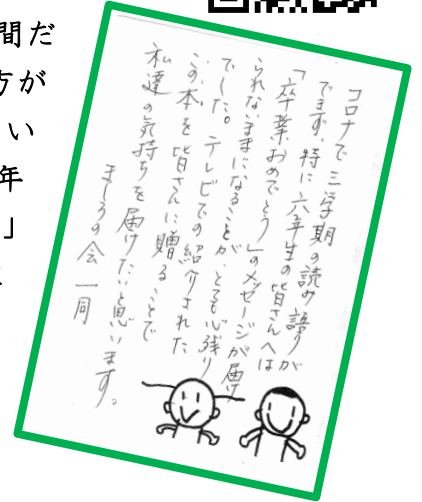 間だ
方が
い
年
」
コロナで三学期の読み語りが
できず、特に六年生の皆さんへは
「卒業おめでとう」のメッセージが届け
られないままになることが、とても心残り
でした。テレビでの紹介された
この本を皆さんに贈ることで
私達の気持ちを届けたいと思います。
ましろの会 一同